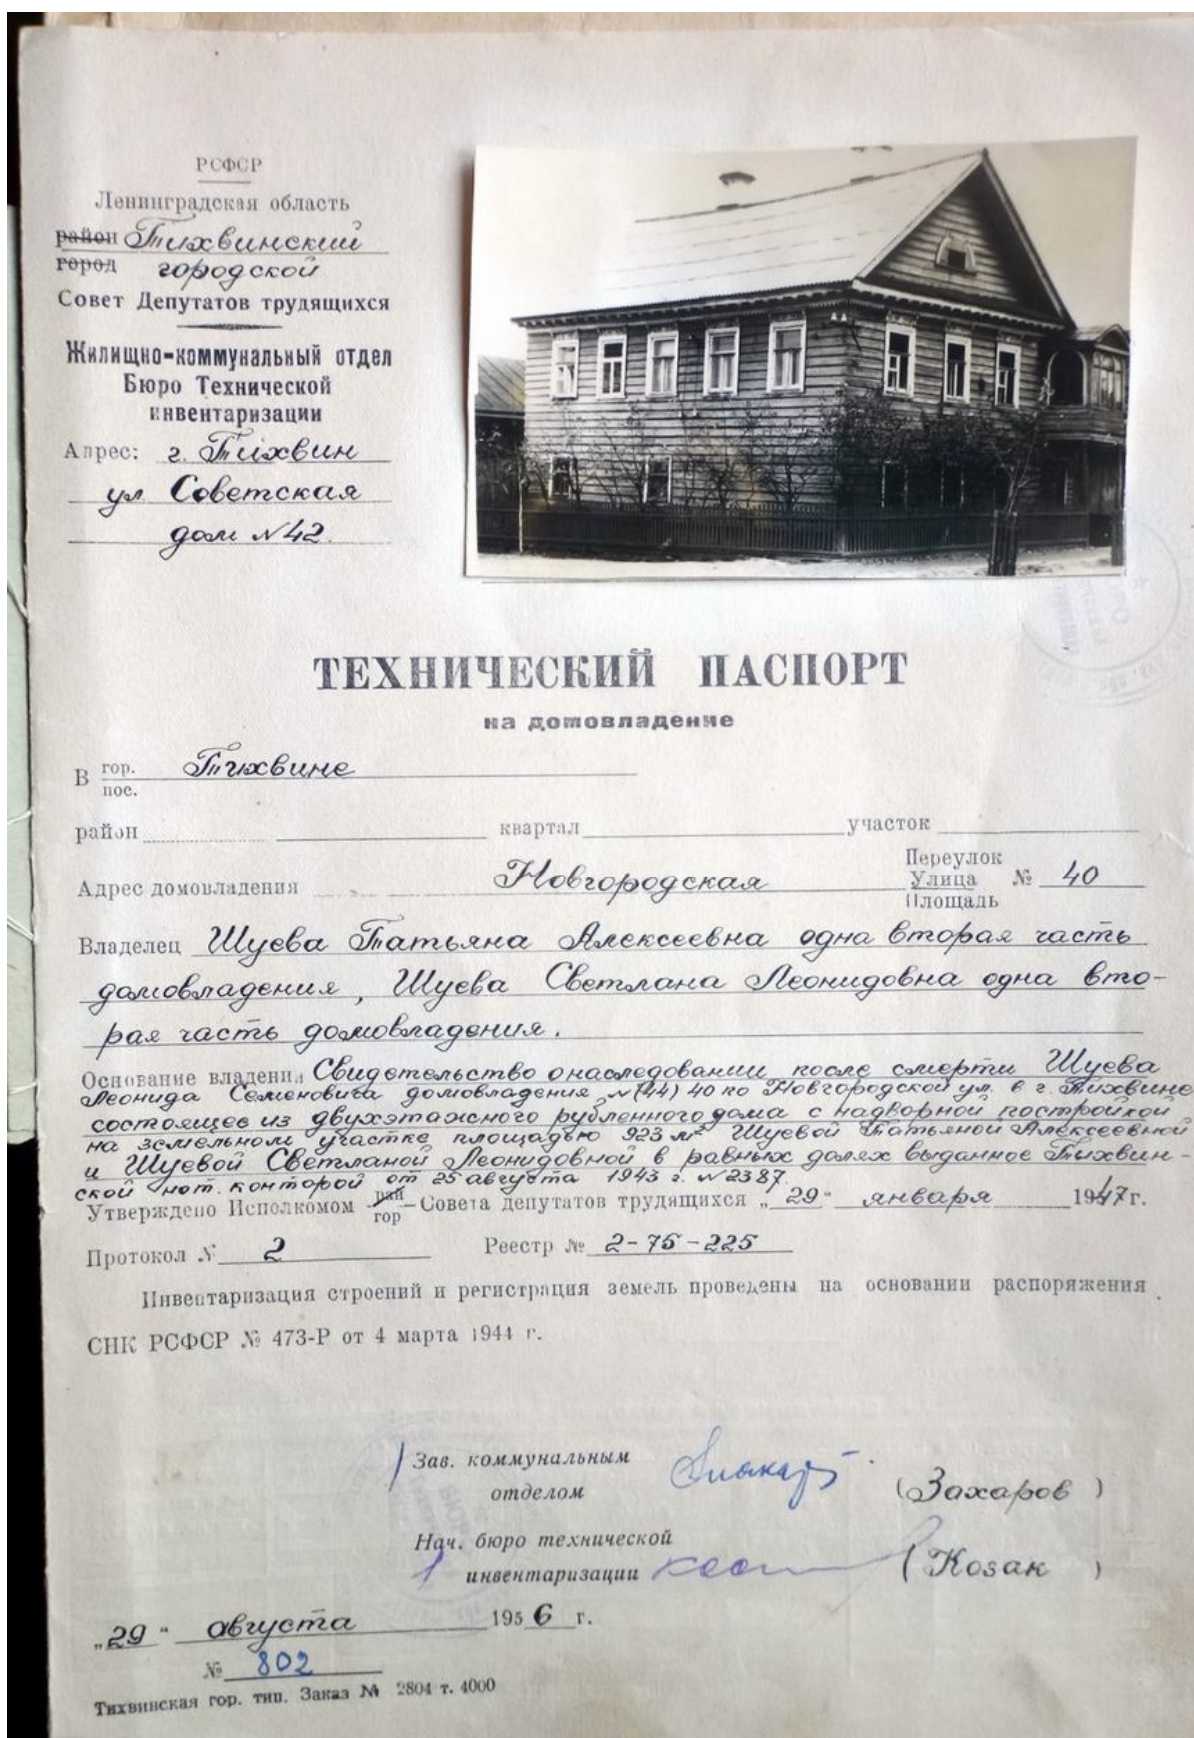 РСФСР
Ленинградская область
район Тихвинский
город городской
Совет Депутатов трудящихся
Жилищно-коммунальный отдел
Бюро Технической
инвентаризации
Адрес: г. Тихвин
ул. Советская
дом № 42.
ТЕХНИЧЕСКИЙ ПАСПОРТ
на домовладение
В гор. Тихвине
пос.
район квартал участок
Переулок
Адрес домовладения Новгородская Улица № 40
Площадь
Владелец Шуева Татьяна Алексеевна одна вторая часть
домовладения, Шуева Светлана Леонидовна одна вто-
рая часть домовладения.
Основание владения Свидетельство о наследовании после смерти Шуева
Леонида Семеновича домовладения №(44) 40 по Новгородской ул. в г. Тихвине
состоящее из двухэтажного рубленного дома с надворной постройкой
на земельном участке площадью 923 м² Шуевой Татьяной Алексеевной
и Шуевой Светланой Леонидовной в равных долях выданное Тихвин-
ской нот. конторой от 25 августа 1943 г. №2387.
Утверждено Исполкомом рай
гор Совета депутатов трудящихся „29“ января 1947г.
Протокол № 2 Реестр № 2-75-225
Инвентаризация строений и регистрация земель проведены на основании распоряжения
СНК РСФСР № 473-Р от 4 марта 1944 г.
Зав. коммунальным
отделом (Захаров)
Нач. бюро технической
инвентаризации (Козак)
„29“ августа 1956 г.
№ 802
Тихвинская гор. тип. Заказ № 2804 т. 4000